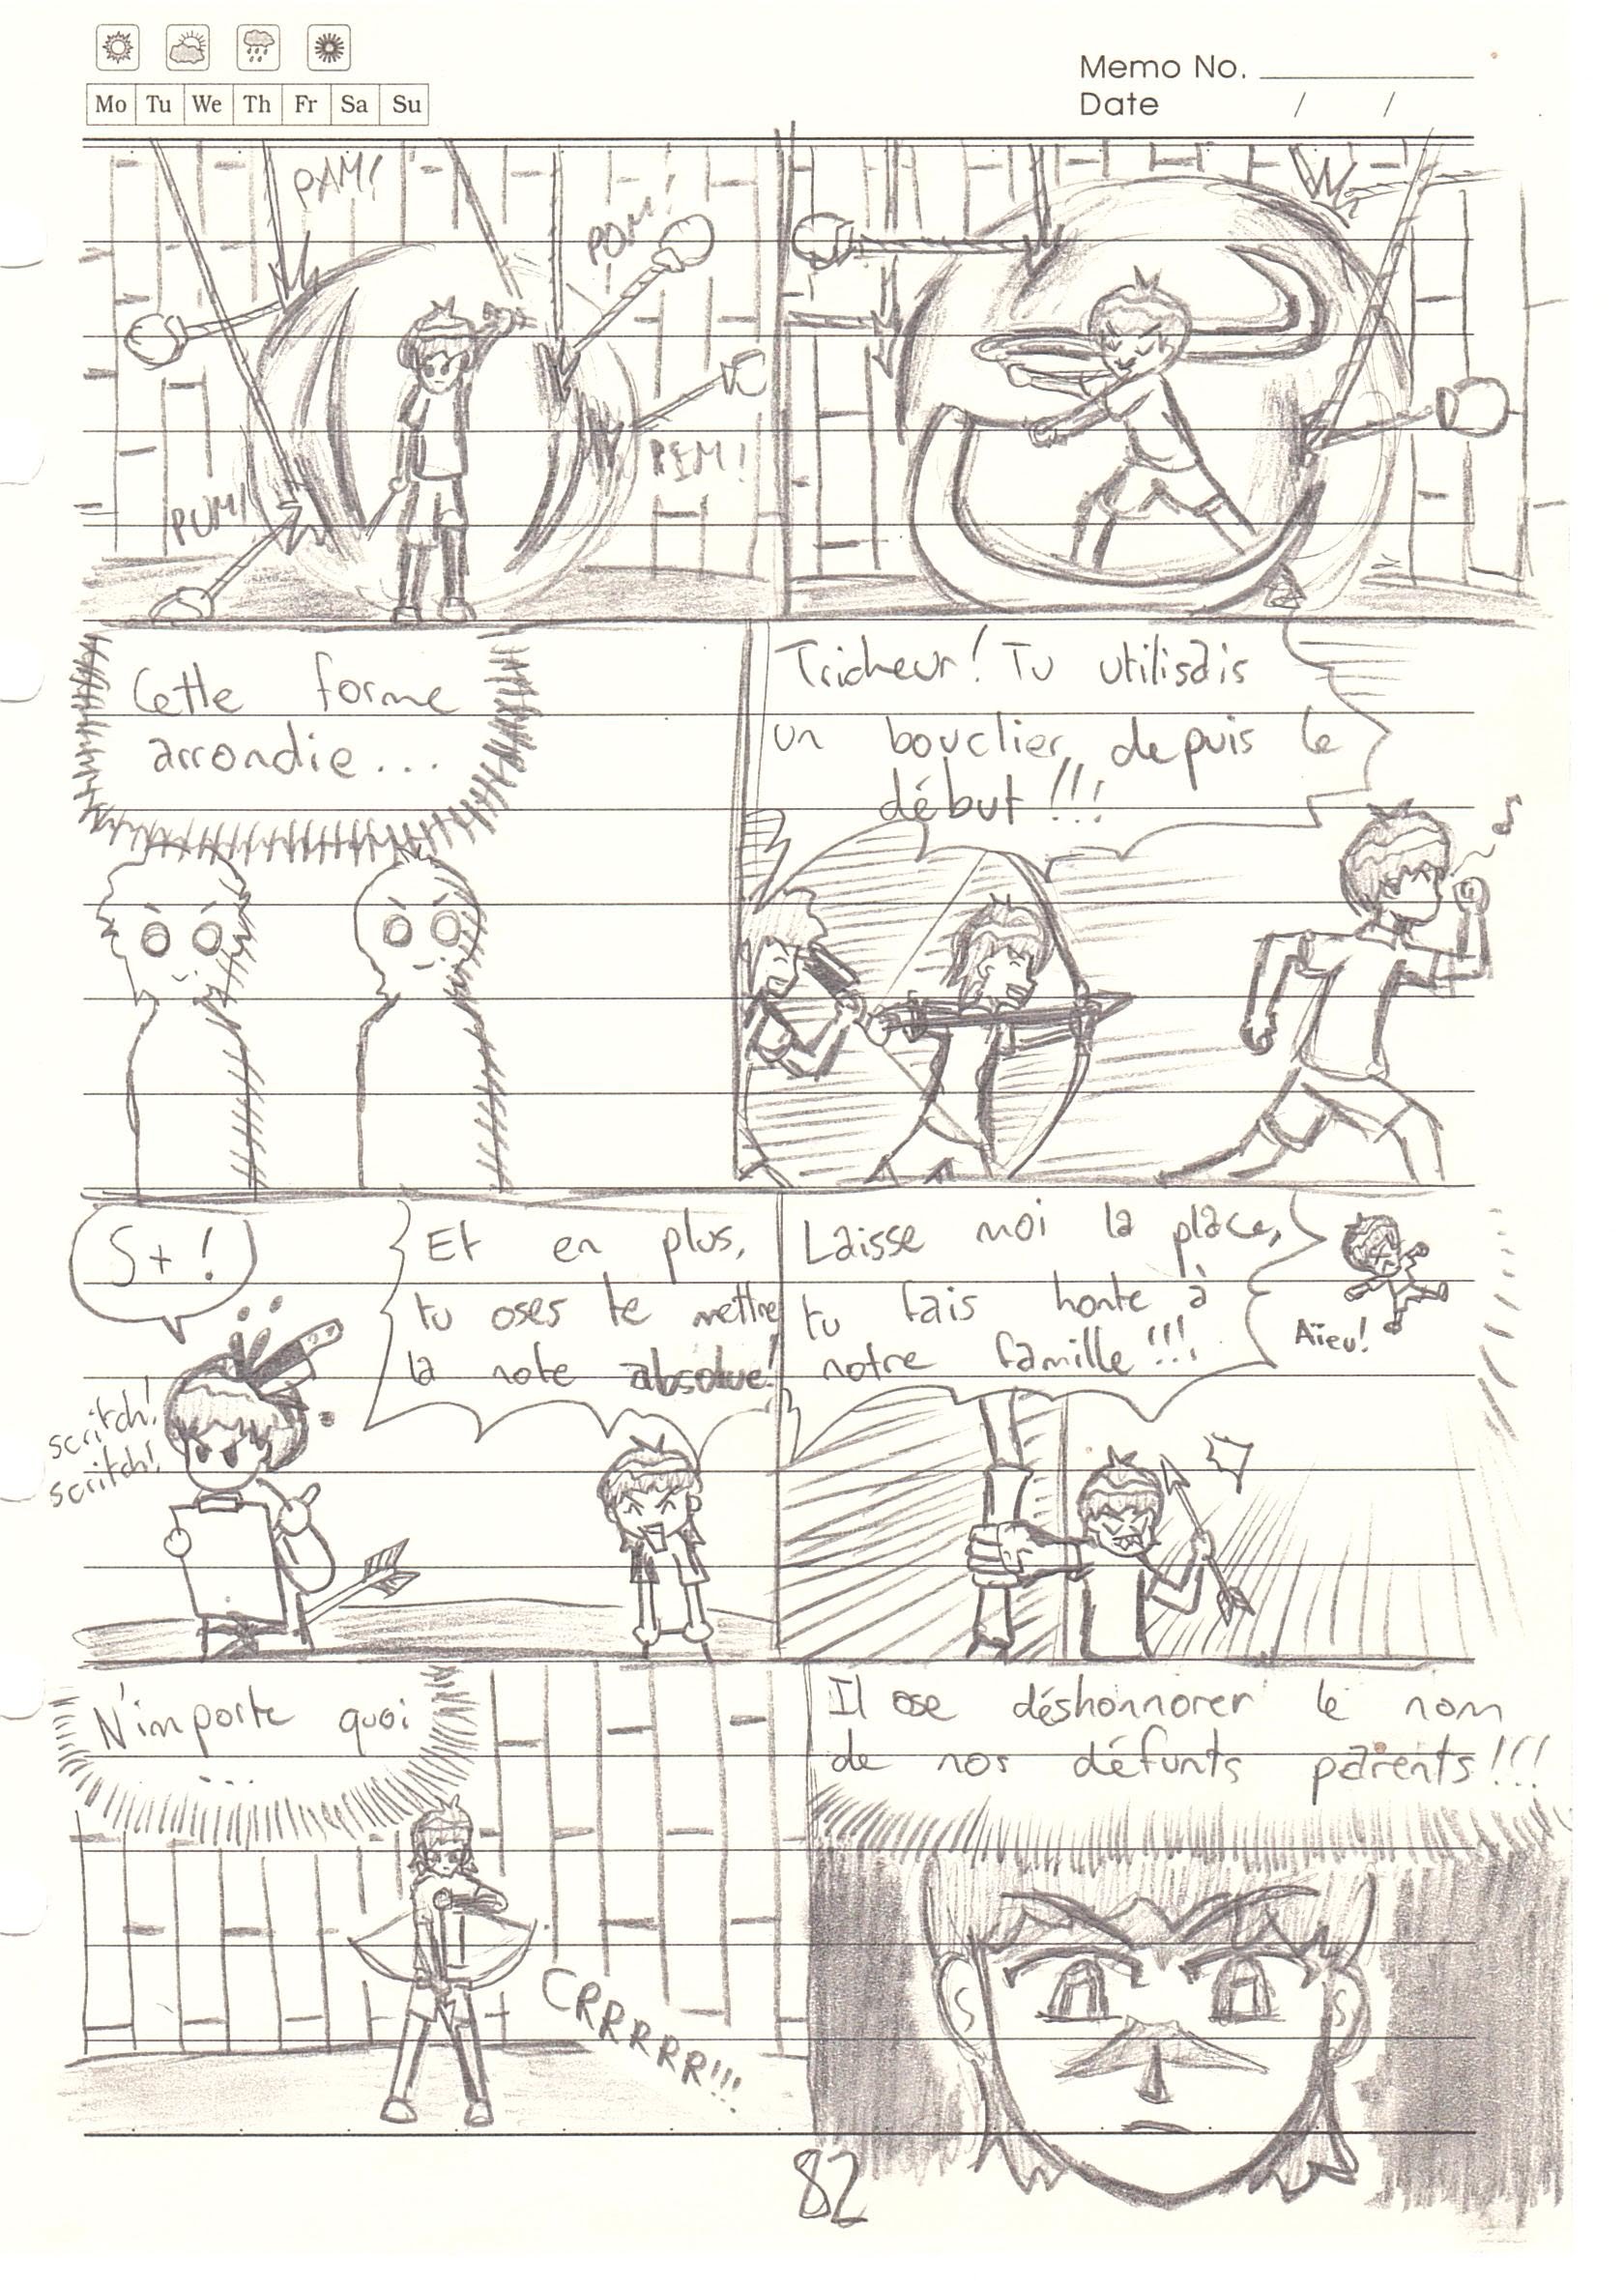 Memo No.
Mo Tu We Th Fr Sa Su
Date / /
PAM!
POM!
PEM!
PUM!
Cette forme
arrondie...
Tricheur! Tu utilisais
un bouclier, depuis le
début!!!
S+!
Et en plus,
tu oses te mettre
la note absolue!
scritch!
scritch!
Laisse moi la place,
tu fais honte à
notre famille!!!
Aïeu!
N'importe quoi
...
CRRRRR!!!
Il ose déshonnorer le nom
de nos défunts parents!!!
82